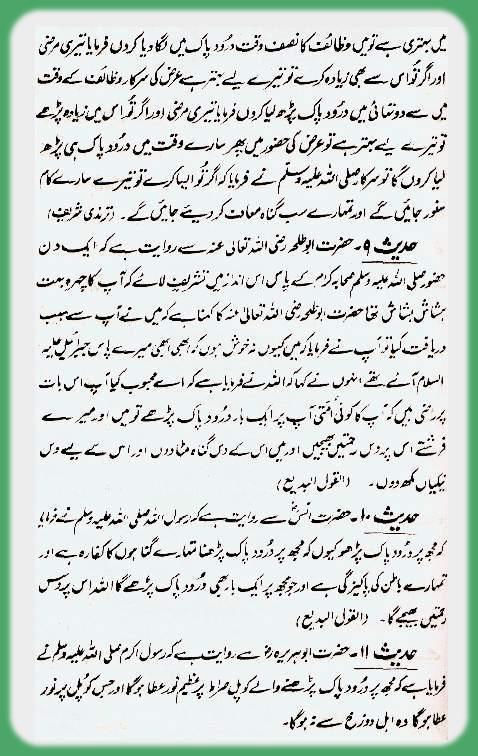 میں بہتری ہے تو میں وظائف کا نصف وقت درُود پاک میں لگا دیا کروں فرمایا تیری مرضی
اور اگر تُو اس سے بھی زیادہ کرے تو تیرے لیے بہتر ہے عرض کی سرکار وظائف کے وقت
میں سے دو تہائی میں درُود پاک پڑھ لیا کروں فرمایا تیری مرضی اور اگر تُو اس میں زیادہ پڑھے
تو تیرے لیے بہتر ہے تو عرض کی حضور میں پھر سارے وقت میں درُود پاک ہی پڑھ
لیا کروں گا تو سرکار صلی اللہ علیہ وسلم نے فرمایا کہ اگر تُو ایسا کرے تو تیرے سارے کام
سنور جائیں گے اور تمہارے سب گناہ معاف کر دیئے جائیں گے۔ (ترمذی شریف)
حدیث ۹۔ حضرت ابو طلحہ رضی اللہ تعالیٰ عنہ سے روایت ہے کہ ایک دن
حضور صلی اللہ علیہ وسلم صحابہ کرام کے پاس اس انداز میں تشریف لائے کہ آپ کا چہرہ بہت
ہشاش بشاش تھا حضرت ابو طلحہ رضی اللہ تعالیٰ عنہ کا کہنا ہے کہ میں نے آپ سے سبب
دریافت کیا تو آپ نے فرمایا کہ میں کیوں نہ خوش ہوں کہ ابھی ابھی میرے پاس جبرائیل علیہ
السلام آئے تھے انہوں نے کہا کہ اللہ نے فرمایا ہے کہ اے محبوب کیا آپ اس بات
پر راضی ہیں کہ آپ کا کوئی اُمتی آپ پر ایک بار درُود پاک پڑھے تو میں اور میرے
فرشتے اس پر دس رحمتیں بھیجیں اور میں اس کے دس گناہ مٹا دوں اور اس کے لیے دس
نیکیاں لکھ دوں۔ (القول البدیع)
حدیث ۱۰۔ حضرت انسؓ سے روایت ہے کہ رسول اللہ صلی اللہ علیہ وسلم نے فرمایا
کہ مجھ پر درُود پاک پڑھو کیوں کہ مجھ پر درُود پاک پڑھنا تمہارے گناہوں کا کفارہ ہے اور
تمہارے باطن کی پاکیزگی ہے اور جو مجھ پر ایک بار بھی درُود پاک پڑھے گا اللہ اس پر دس
رحمتیں بھیجے گا۔ (القول البدیع)
حدیث ۱۱۔ حضرت ابو ہریرہ رضؓ سے روایت ہے کہ رسول اکرم صلی اللہ علیہ وسلم نے
فرمایا ہے کہ مجھ پر درُود پاک پڑھنے والے کو پل صراط پر عظیم نور عطا ہوگا اور جس کو پل پر نور
عطا ہوگا وہ اہل دوزخ سے نہ ہوگا۔